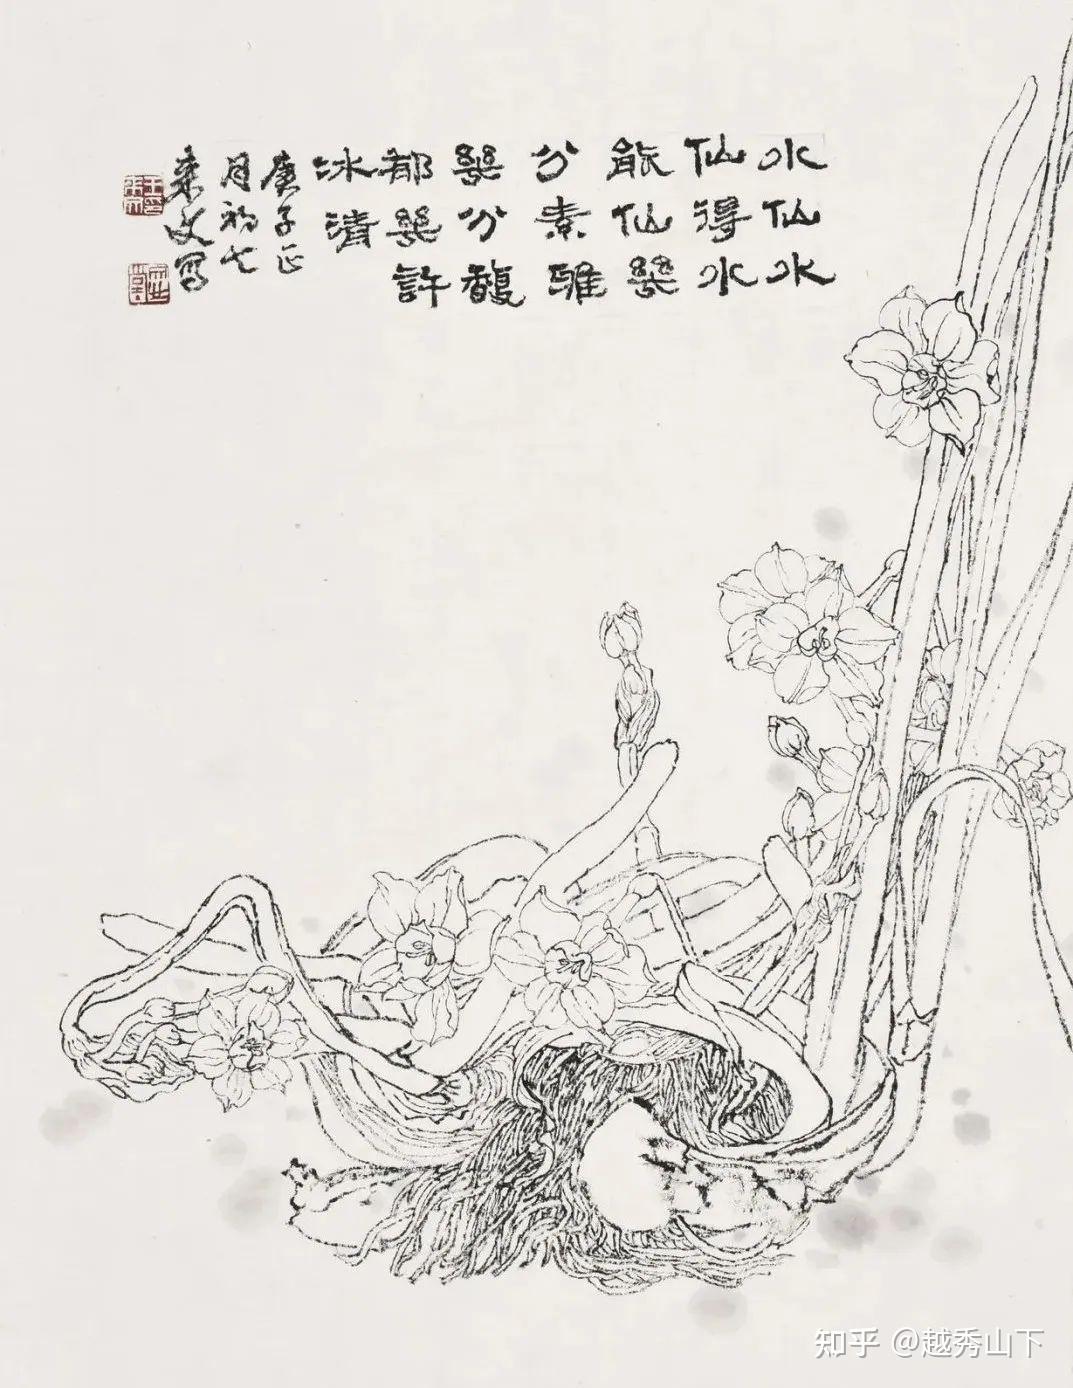 水仙水
仙得水
能仙幾
分素雅
幾分馥
郁幾許
冰清
庚子正
月初七
来文写
知乎 @越秀山下